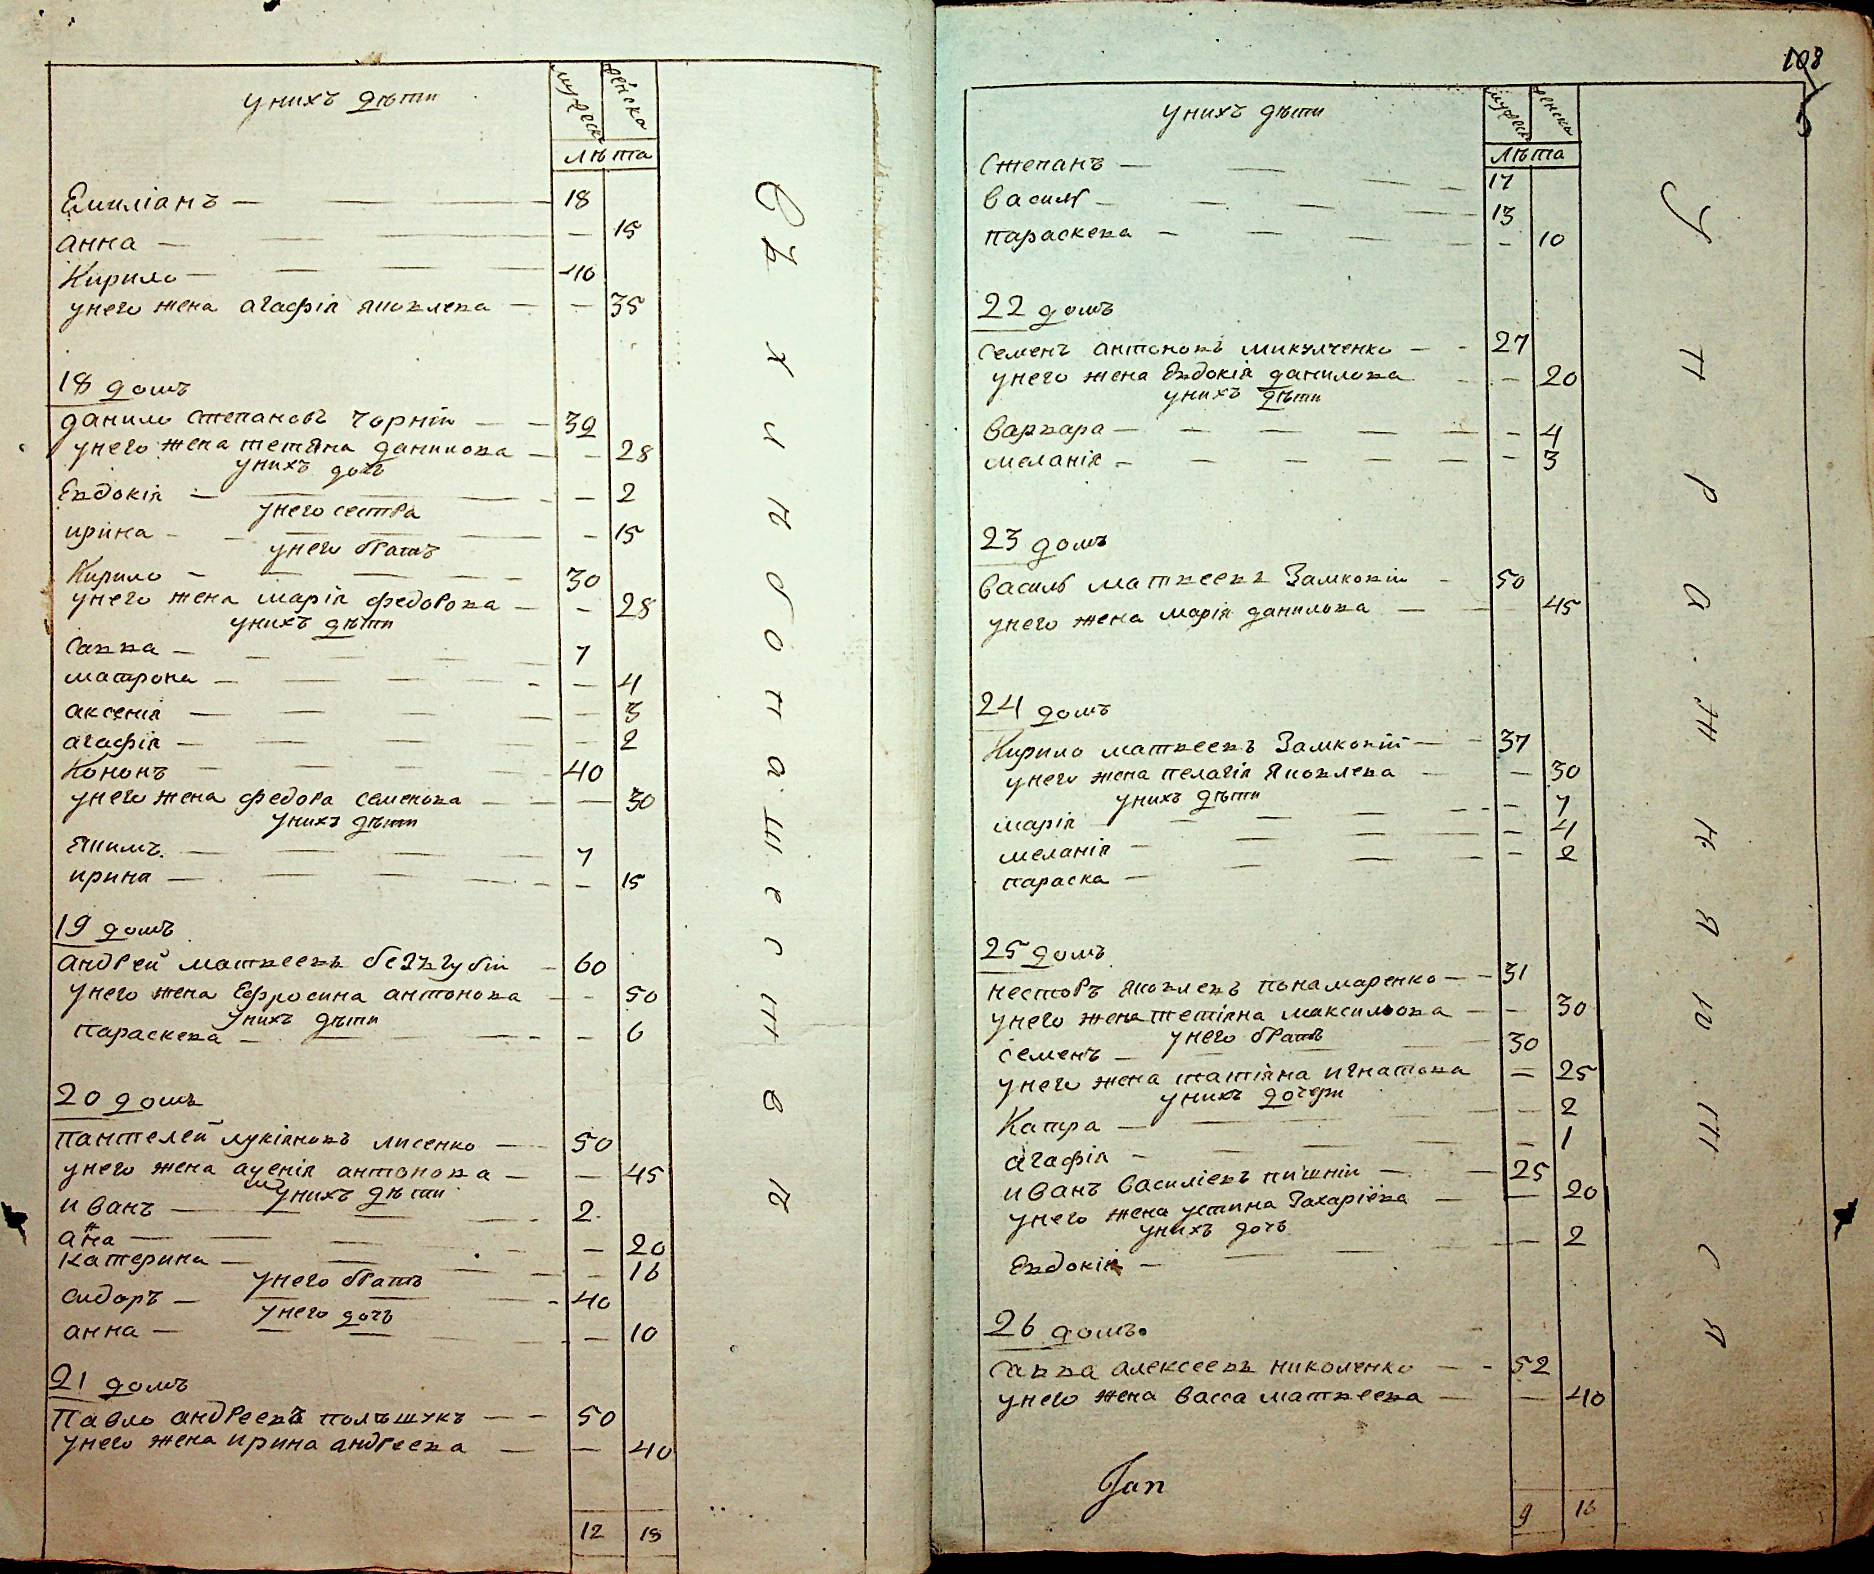 унихъ дѣти
мужеска
женска
лѣта
Емиліанъ 18
анна 15
Кирило 40
унего жена агафія яковлева 35
18 домъ
данило степановъ чорній 32
унего жена тетяна данилова 28
унихъ дочь
Евдокія 2
унего сестра
ирина 15
унего братъ
Кирило 30
унего жена марія федорова 28
унихъ дѣти
савва 7
матрона 4
аксенія 3
агафія 2
Кононъ 40
унего жена федора семенова 30
унихъ дѣти
якимъ 7
ирина 15
19 домъ
андрей матвеевъ безкгубій 60
унего жена Ефросина антонова 50
унихъ дѣти
параскева 6
20 домъ
пантелей лукіяновъ лисенко 50
унего жена антонова 45
унихъ дѣти
иванъ 2
анна 20
катерина 16
унего братъ
сидоръ 40
унего дочь
анна 10
21 домъ
Павло андреевъ полѣшукъ 50
унего жена ирина андреева 40
12 18
108
унихъ дѣти
мужеска
женска
лѣта
Степанъ 17
василь 13
параскева 10
22 домъ
семенъ антоновъ микулченко 27
унего жена Евдокія данилова 20
унихъ дѣти
варвара 4
меланія 3
23 домъ
василь матвеевъ Замковій 50
унего жена марія данилова 45
24 домъ
Кирило матвеевъ Замковій 37
унего жена пелагія яковлева 30
унихъ дѣти
марія 7
меланія 4
параска 2
25 домъ
несторъ яковлевъ понамаренко 31
унего жена тетіяна максимова 30
унего братъ
семенъ 30
унего жена татіяна игнатова 25
унихъ дочери
Капра 2
агафія 1
иванъ василіевъ пишній 25
унего жена устина Захаріева 20
унихъ дочь
Евдокія 2
26 домъ
савва алексеевъ николенко 52
унего жена васса матвеева 40
Јап
9 16